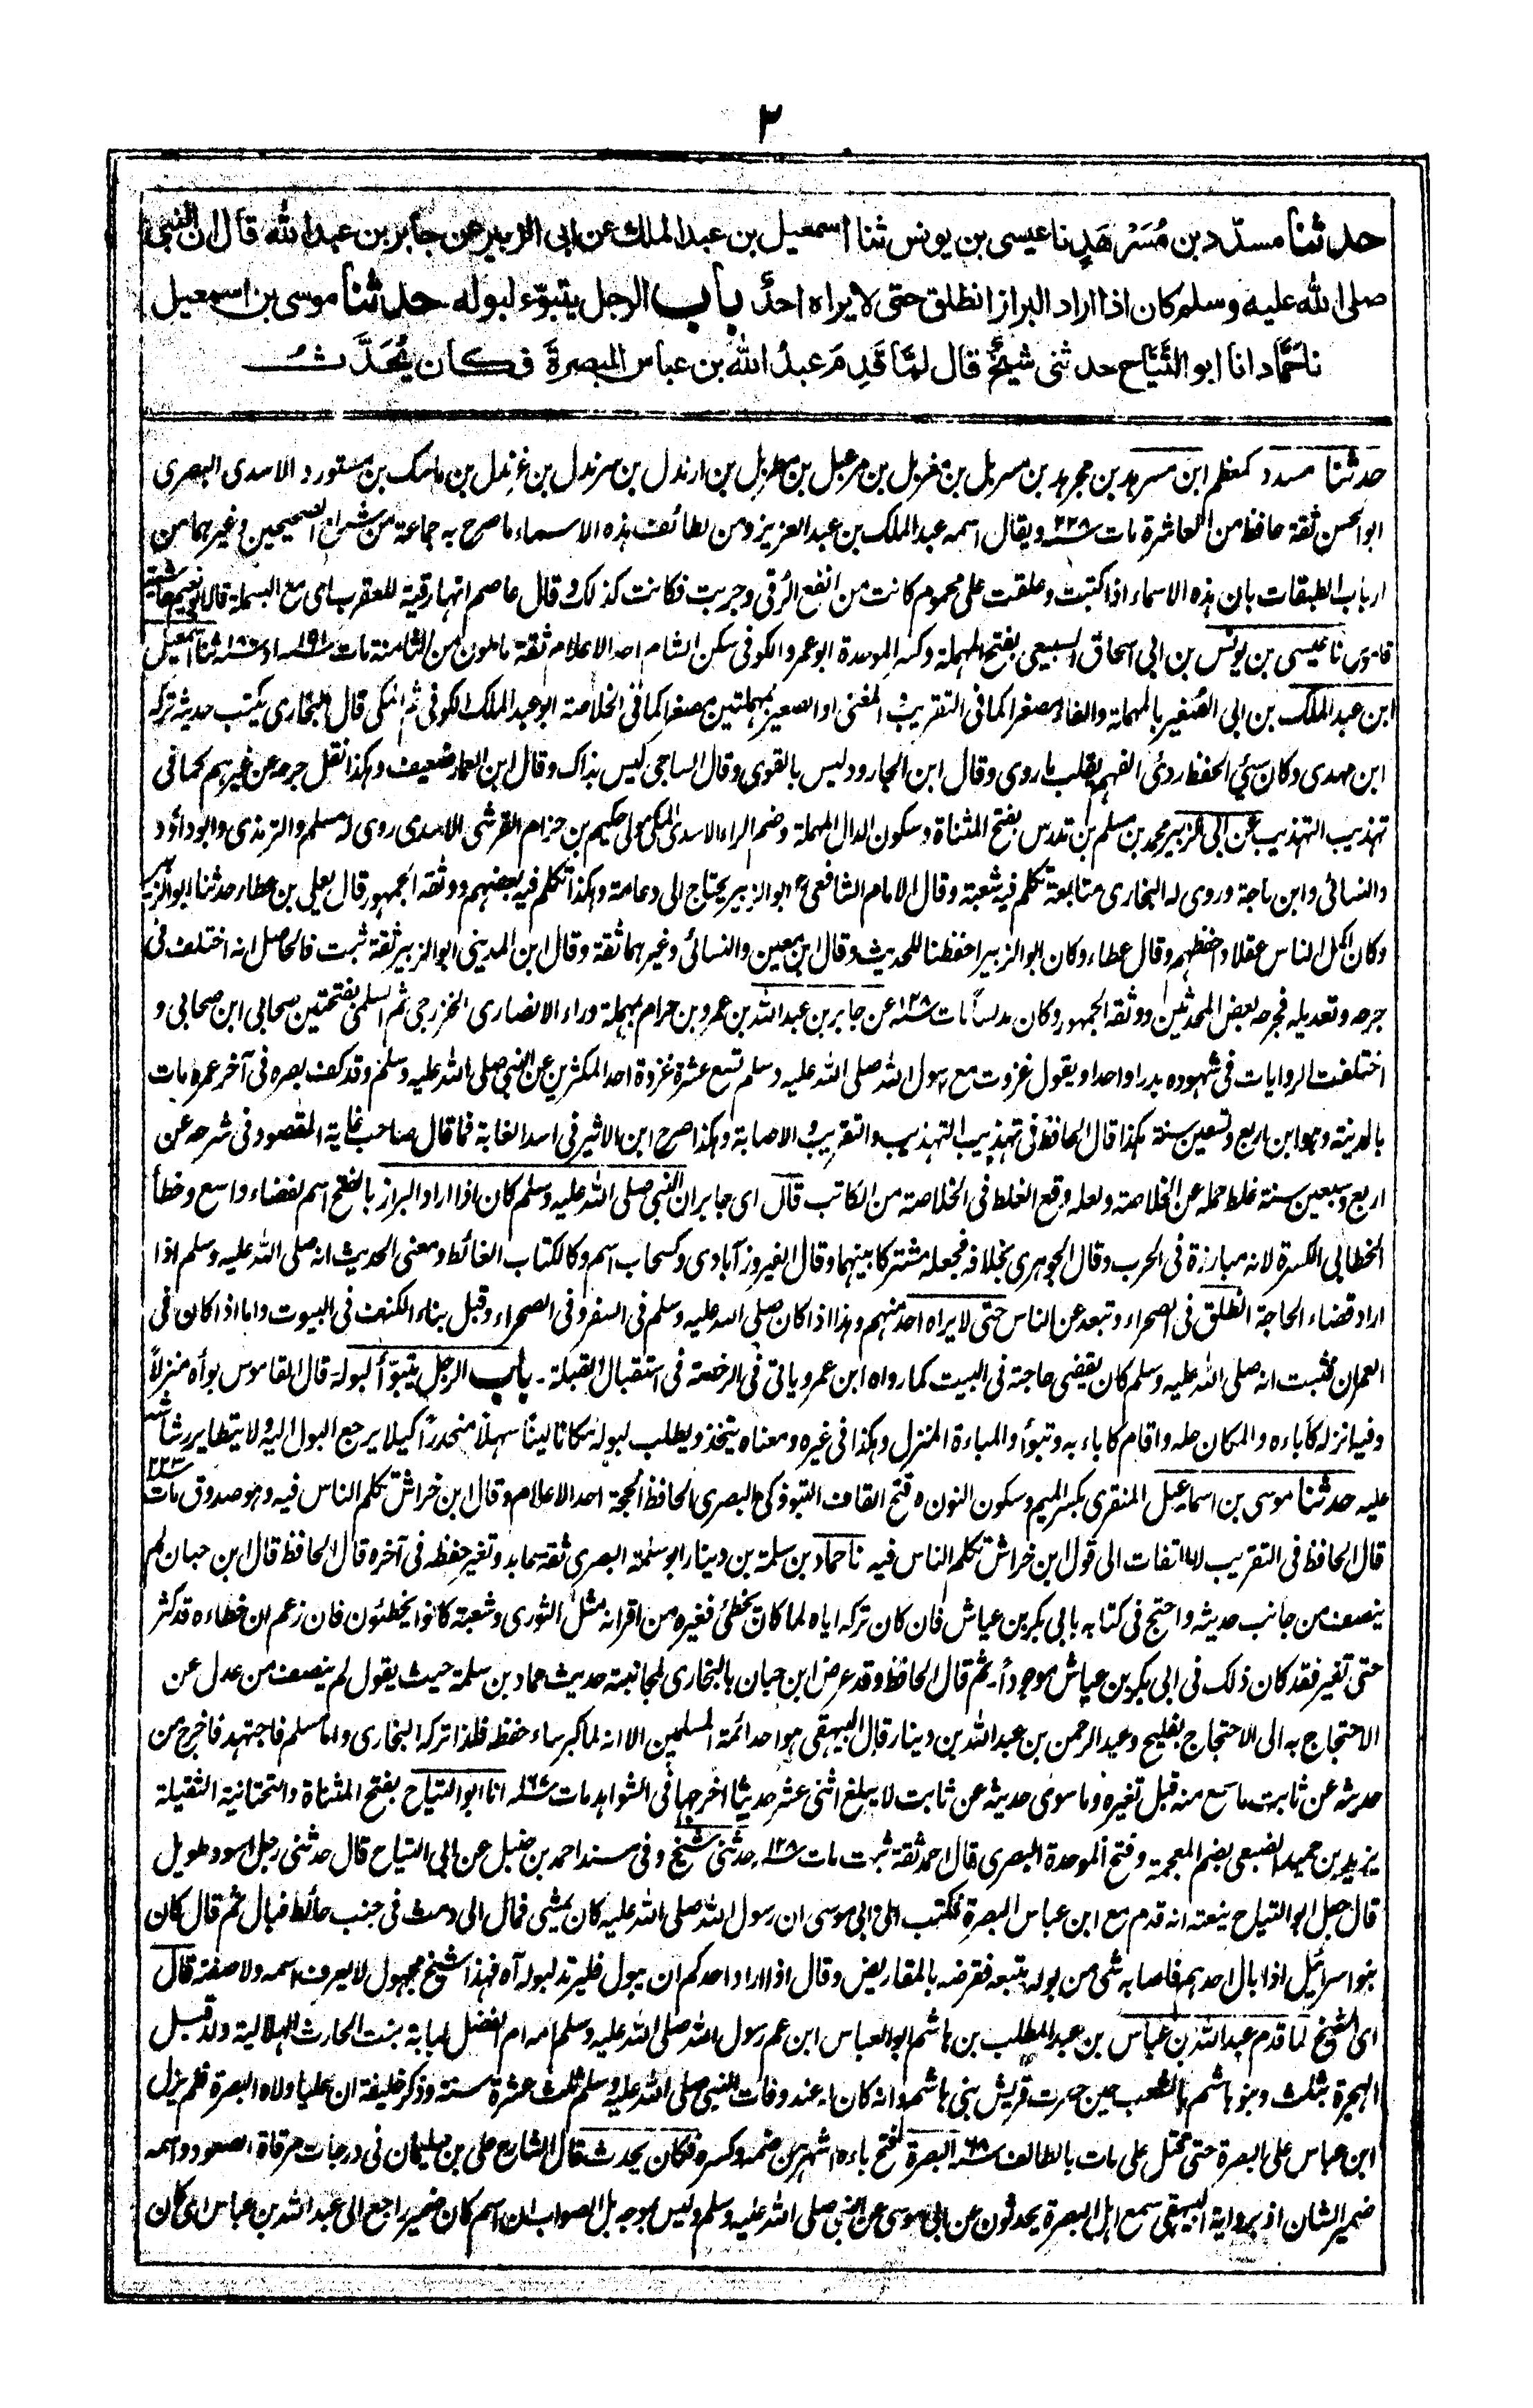 ٣
حدثنا مسدّد بن مُسَرْهَدٍ نا عيسى بن يونس ثنا اسمعيل بن عبد الملك عن ابى الزبير عن جابر بن عبد الله قال ان النبى
صلى الله عليه وسلم كان اذا اراد البراز انطلق حتى لا يراه احدٌ باب الرجل يتبوّء لبوله حدثنا موسى بن اسمعيل
نا حمَّاد انا ابو التَّيَّاح حدثنى شيخٌ قال لمَّا قَدِمَ عبدُ الله بن عباس البصرةَ فكان يُحَدَّثُ
حدثنا مسدد كمعظم ابن مسرهد بن مجرهد بن مسربل بن مغربل بن مرعبل بن مطربل بن ارندل بن سرندل بن غرندل بن ماسك بن مستورد الاسدى البصرى
ابو الحسن ثقة حافظ من العاشرة مات ٢٢٨ ويقال اسمه عبد الملك بن عبد العزيز ومن لطائف هذه الاسماء ما صرح به جماعة من شراح الصحيحين وغيرهما من
ارباب الطبقات بان هذه الاسماء اذا كتبت وعلقت على محموم كانت من انفع الرقى وجربت فكانت كذلك وقال عاصم انها رقية للعقرب اى مع البسملة قاله
نا عيسى بن يونس بن ابى اسحاق السبيعى بفتح المهملة وكسر الموحدة ابو عمرو الكوفى سكن الشام احد الاعلام ثقة مامون من الثامنة مات ١٩١ او ثنا اسمعيل
ابن عبد الملك بن ابى الصُفير بالمهملة والفاء مصغرا كما فى التقريب والمغنى او الصعير بمهملتين مصغرا كما فى الخلاصة ابو عبد الملك الكوفى ثم المكى قال البخارى يكتب حديثه تركه
ابن مهدى وكان سيئ الحفظ ردئ الفهم يقلب ما روى وقال ابن الجارود ليس بالقوى وقال الساجى ليس بذاك وقال ابن العمار ضعيف وهكذا نقل جرحه عن غيرهم كما فى
تهذيب التهذيب عن ابى الزبير محمد بن مسلم بن تدرس بفتح المثناة وسكون الدال المهملة وضم الراء الاسدى المكى مولى حكيم بن حزام القرشى الاسدى روى له مسلم والترمذى وابو داؤد
والنسائى وابن ماجة وروى له البخارى متابعة تكلم فيه شعبة وقال الامام الشافعى ابو الزبير يحتاج الى دعامة وهكذا تكلم فيه بعضهم ووثقه الجمهور قال يعلى بن عطاء حدثنا ابو الزبير
وكان اكمل الناس عقلا واحفظهم وقال عطاء وكان ابو الزبير احفظنا للحديث وقال ابن معين والنسائى وغيرهما ثقة وقال ابن المدينى ابو الزبير ثقة ثبت فالحاصل انه اختلف فى
جرحه وتعديله فجرحه بعض المحدثين ووثقه الجمهور وكان مدلساً مات ١٢٨ عن جابر بن عبد الله بن عمرو بن حرام بمهملة وراء الانصارى الخزرجى ثم السلمى بفتحتين صحابى ابن صحابى و
اختلفت الروايات فى شهوده بدرا واحدا ويقول غزوت مع رسول الله صلى الله عليه وسلم تسع عشرة غزوة احد المكثرين عن النبى صلى الله عليه وسلم وقد كف بصره فى آخر عمره مات
بالمدينة وهو ابن اربع وتسعين سنة هكذا قال الحافظ فى تهذيب التهذيب والتقريب والاصابة وهكذا صرح ابن الاثير فى اسد الغابة فما قال صاحب غاية المقصود فى شرحه عن
اربع وسبعين سنة غلط حمله عن الخلاصة ولعله وقع الغلط فى الخلاصة من الكاتب قال اى جابر ان النبى صلى الله عليه وسلم كان اذا اراد البراز بالفتح اسم لفضاء واسع وخطأ
الخطابى الكسرة لانه مبارزة فى الحرب وقال الجوهرى بخلافه فجعله مشتركا بينهما وقال الفيروزآبادى وكسحاب اسم وكالكتاب الغائط ومعنى الحديث انه صلى الله عليه وسلم اذا
اراد قضاء الحاجة انطلق فى الصحراء وتبعد عن الناس حتى لا يراه احد منهم وهذا اذا كان صلى الله عليه وسلم فى السفر وفى الصحراء وقبل بناء الكنف فى البيوت واما اذا كان فى
العمران فثبت انه صلى الله عليه وسلم كان يقضى حاجته فى البيت كما رواه ابن عمر وياتى فى الرخصة فى استقبال القبلة - باب الرجل يتبوّأ لبوله قال القاموس بوأه منزلاً
وفيه انزله كاباءه والمكان حله واقام كاباء به وتبوأ والمباءة المنزل وهكذا فى غيره ومعناه يتخذ ويطلب لبوله مكانا لينا سهلاً منحدراً كيلا يرجع البول اليه ولا يتطاير رشاشه
عليه حدثنا موسى بن اسماعيل المنقرى بكسر الميم وسكون النون وفتح القاف التبوذكى البصرى الحافظ الحجة احد الاعلام وقال ابن خراش تكلم الناس فيه وهو صدوق مات ٢٢٣
قال الحافظ فى التقريب لا التفات الى قول ابن خراش تكلم الناس فيه نا حماد بن سلمة بن دينار ابو سلمة البصرى ثقة عابد وتغير حفظه فى آخره قال الحافظ قال ابن حبان لم
ينصف من جانب حديثه واحتج فى كتابه بابى بكر بن عياش فان كان تركه اياه لما كان يخطئ فغيره من اقرانه مثل الثورى وشعبة كانوا يخطئون فان زعم ان خطاءه قد كثر
حتى تغير فقد كان ذلك فى ابى بكر بن عياش موجودا - ثم قال الحافظ وقد عرض ابن حبان بالبخارى لمجانبته حديث حماد بن سلمة حيث يقول لم ينصف من عدل عن
الاحتجاج به الى الاحتجاج بفليح وعبد الرحمن بن عبد الله بن دينار قال البيهقى هو احد ائمة المسلمين الا انه لما كبر ساء حفظه فلذا تركه البخارى واما مسلم فاجتهد فاخرج من
حديثه عن ثابت ما سمع منه قبل تغيره وما سوى حديثه عن ثابت لا يبلغ اثنى عشر حديثا اخرجها فى الشواهد مات انا ابو التياح بفتح المثناة والتحتانية الثقيلة
يزيد بن حميد الضبعى بضم المعجمة وفتح الموحدة البصرى قال احمد ثقة ثبت مات ١٢٨ حدثنى شيخ وفى مسند احمد بن حنبل عن ابى التياح قال حدثنى رجل اسود طويل
قال جعل ابو التياح ينعته انه قدم مع ابن عباس البصرة فكتب الى ابى موسى ان رسول الله صلى الله عليه كان يمشى فمال الى دمث فى جنب حائط فبال ثم قال كان
بنو اسرائيل اذا بال احدهم فاصابه شئ من بوله يتبعه فقرضه بالمقاريض وقال اذا اراد احدكم ان يبول فليرتد لبوله آه فهذا شيخ مجهول لا يعرف اسمه ولا صفته قال
اى الشيخ لما قدم عبد الله بن عباس بن عبد المطلب بن هاشم ابو العباس ابن عم رسول الله صلى الله عليه وسلم امه ام الفضل لبابة بنت الحارث الهلالية ولد قبل
الهجرة بثلث وبنو هاشم بالشعب حين حصرت قريش بنى هاشم وانه كان له عند وفات النبى صلى الله عليه وسلم ثلث عشرة سنة وذكر خليفة ان عليا ولاه البصرة فلم يزل
ابن عباس على البصرة حتى قتل على مات بالطائف ٦٨ البصرة بفتح باءه اشهر من ضمه وكسره فكان يحدث قال الشارح على بن سليمان فى درجات مرقاة الصعود واسمه
ضمير الشان اذ برواية البيهقى سمع اهل البصرة يحدثون عن ابى موسى عن النبى صلى الله عليه وسلم وليس بوجه بل الصواب ان اسم كان ضمير راجع الى عبد الله بن عباس اى كان